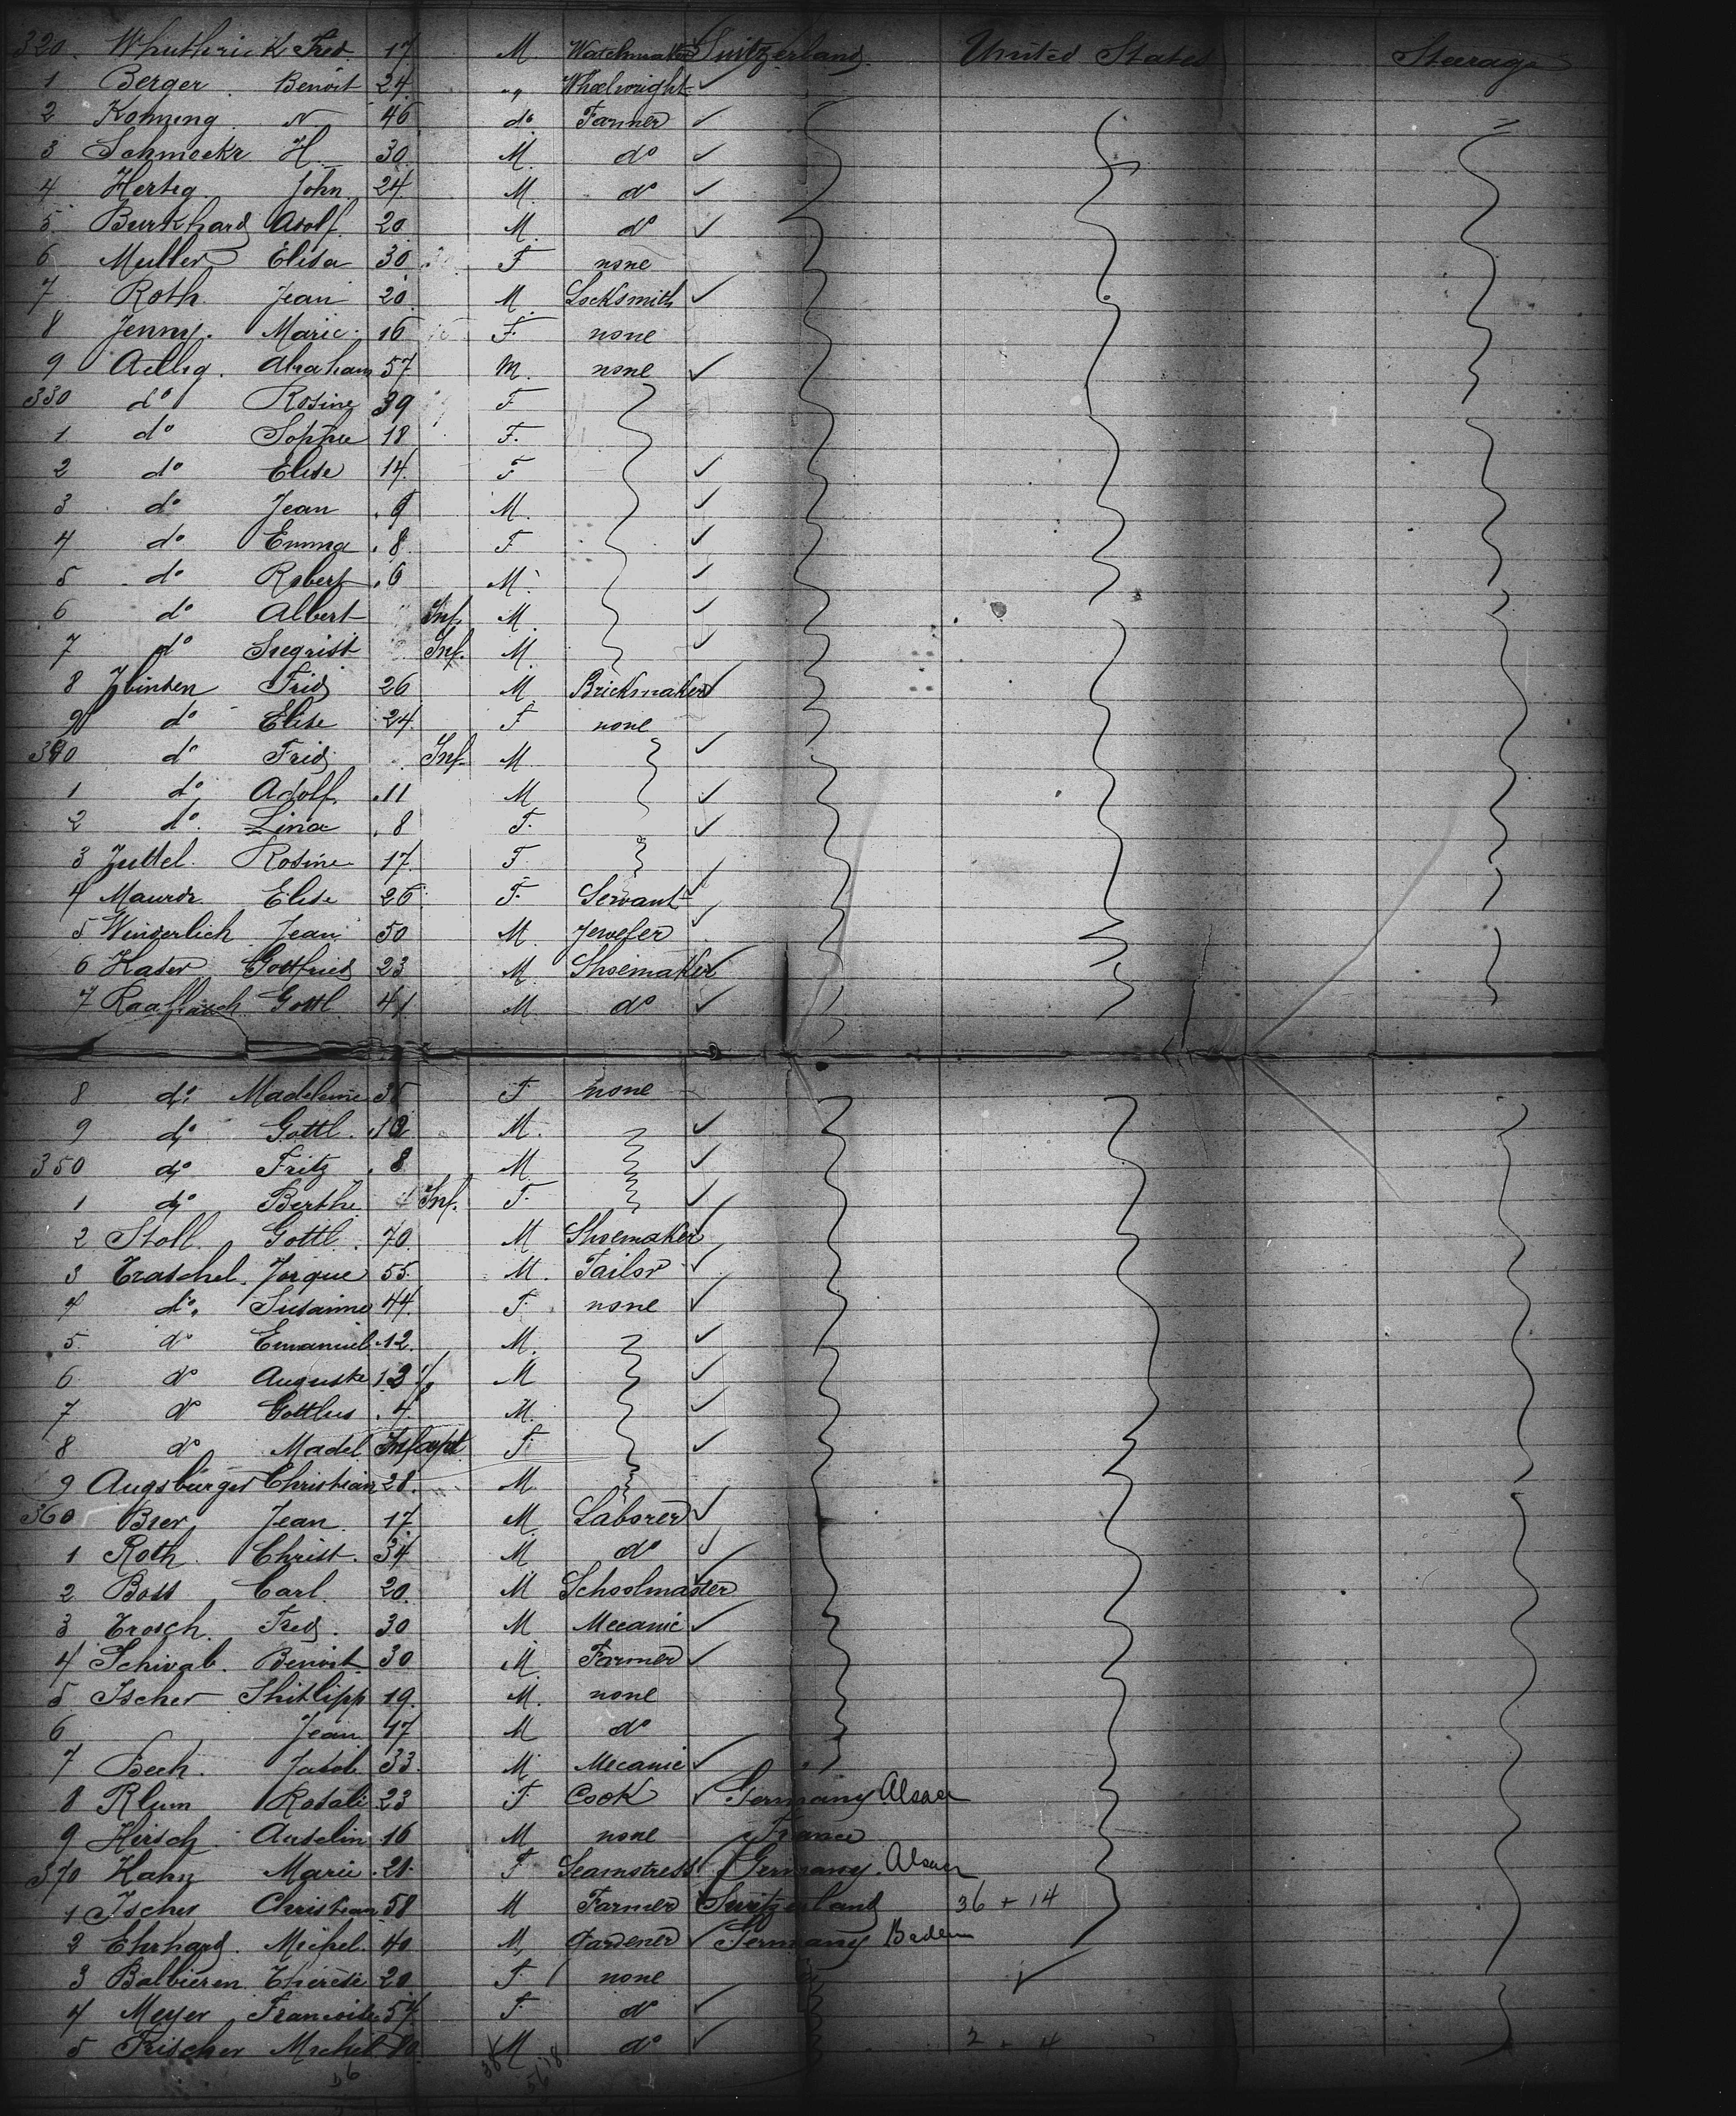 320. Whutheric K Fred 17 M. Watchmaker Switzerland. United States Steerage
1 Berger. Benoit 24 „ Wheelwright ✓
2 Kohnung. N 46 do Farmer ✓
3 Schmockr H. 30. M. do ✓
4 Hertig John 24 M. do ✓
5. Burkhard Adolf. 20 M. do ✓
6 Muller Elisa 30 F none
7 Roth Jean 20 M. Locksmith ✓
8 Jenny. Marie. 16 F. none
9 Aellig. Abraham 57 M. none ✓
330 do Rosine 39 F
1 do Sophie 18 F.
2 do Elise 14. F ✓
3 do Jean .9 M. ✓
4 do Emma .8. F ✓
5 do Robert .6 M. ✓
6 do Albert Inf. M. ✓
7 do Siegrist Inf. M. ✓
8 Zbinden Frid 26 M Brickmaker ✓
9 do Elise 24. F none
340 do Frid Inf. M ✓
1 do Adolf. .11 M ✓
2 do. Lina .8 F. ✓
3 Juttel. Rosine 17. F ✓
4 Maurer Elise 26 F. Servant ✓
5 Winderlich Jean 50 M. Jeweler ✓
6 Kaser Gottfried 23 M Shoemaker ✓
7 Raaflaub Gottl. 41 M do ✓
8 do Madeleine 35 F none
9 do Gottl. .10 M. ✓
350 do Fritz .8 M ✓
1 do Berthe Inf. F. ✓
2 Stoll. Gottl. 70. M Shoemaker ✓
3 Traschel. Jorque 55. M. Tailor ✓
4 do. Susanne 44. F. none ✓
5. do Emanuel .12. M. ✓
6 do Auguste 12 M ✓
7 do Gottlieb .4. M. ✓
8 do Madel. Infant F. ✓
9 Augsburger Christian 28. M.
360 Bier Jean. 17. M Laborer ✓
1 Roth. Christ. 34 M do ✓
2 Boss Carl. 20. M Schoolmaster ✓
3 Trosch. Fred. 30 M Mecanic ✓
4 Schwab. Benoit 30 M. Farmer ✓
5 Ischer Phillipp 19. M. none
6 Jean 17 M do
7 Bech. Jacob 33. M. Mecanic ✓
8 Blum Rosali 23 F Cook ✓ Germany Alsace
9 Hirsch Anselin 16 M none France
370 Hahn Marie .21. F Seamstress ✓ Germany. Alsace
1 Ischer Christian 58 M Farmer Switzerland 36 + 14
2 Ehrhard. Michel. 40 M, Gardener ✓ Germany Baden
3 Balbieren Therese 20 F. none ✓
4 Meyer Francoise 57. F do ✓
5 Frischer Michel 80. M do ✓ 2 + 4